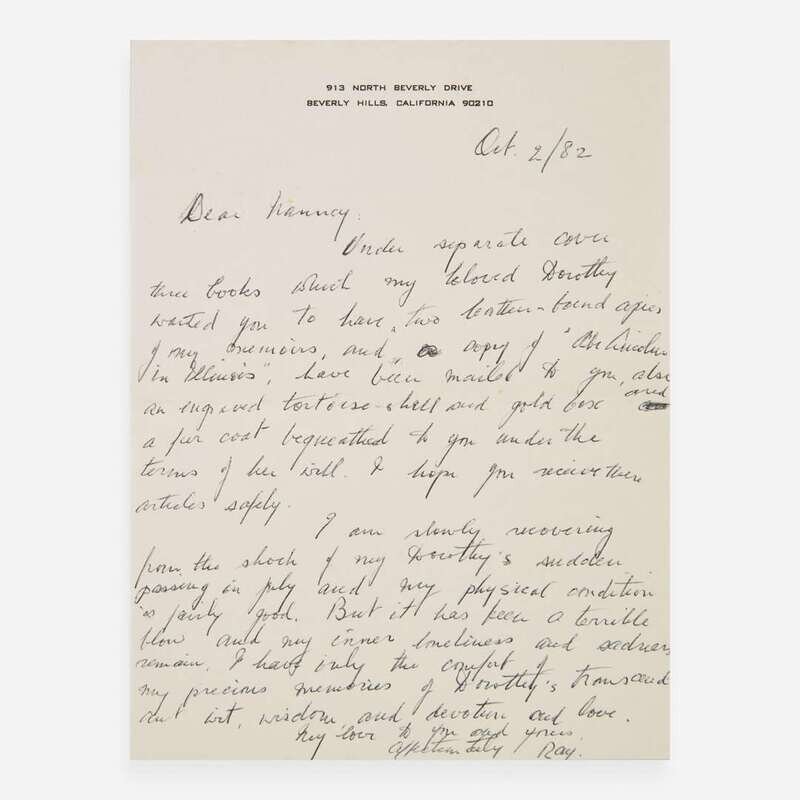 913 NORTH BEVERLY DRIVE
BEVERLY HILLS, CALIFORNIA 90210
Oct. 2/82
Dear Nanncy:
Under separate cover
three books which my beloved Dorothy
wanted you to have, two leather-bound copies
of my memoirs, and a copy of "Abe Lincoln
in Illinois", have been mailed to you, also
an engraved tortoise-shell and gold box and
a fur coat bequeathed to you under the
terms of her will. I hope you receive these
articles safely.
I am slowly recovering
from the shock of my Dorothy's sudden
passing in July and my physical condition
is fairly good. But it has been a terrible
blow and my inner loneliness and sadness
remain. I have only the comfort of
my precious memories of Dorothy's transcend
ent wit, wisdom and devotion and love.
My love to you and yours.
Affectionately Ray.